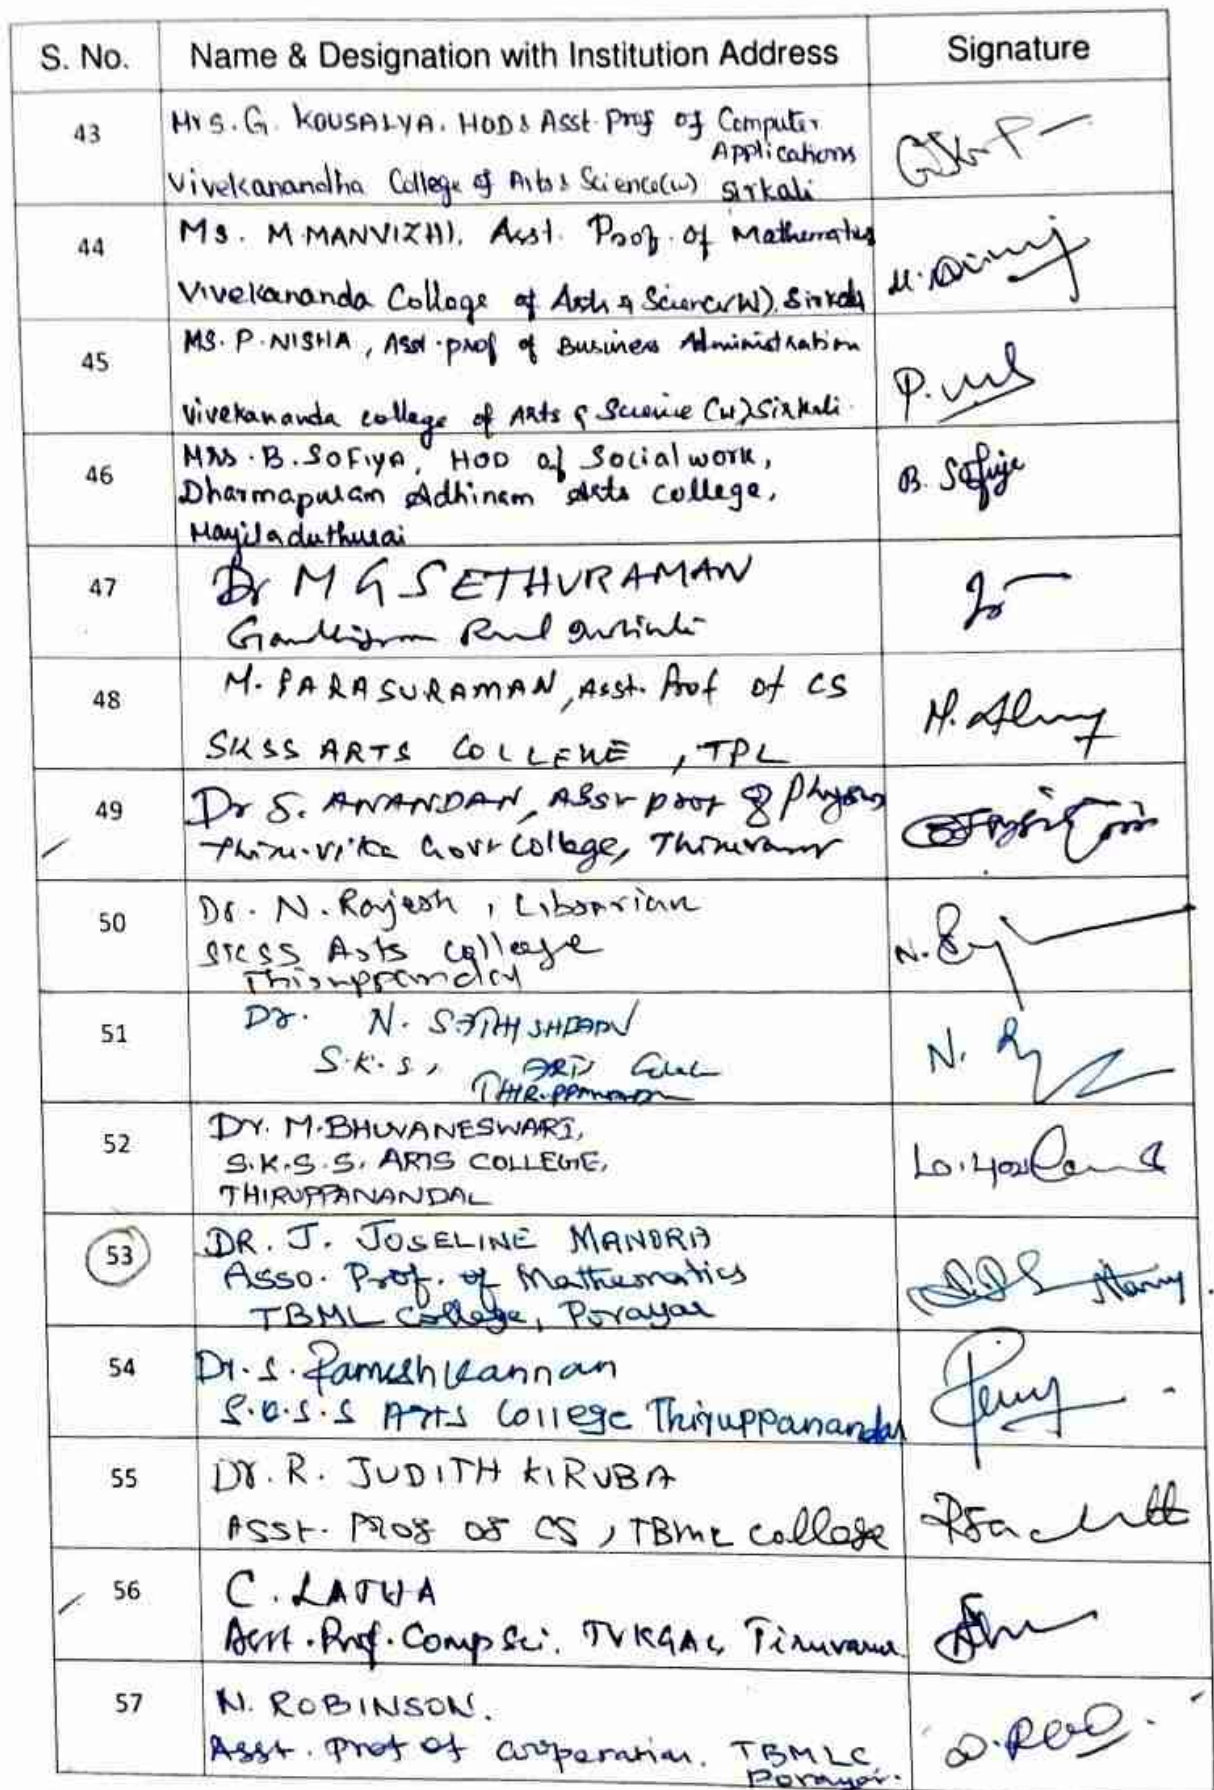 S. No. Name & Designation with Institution Address Signature
43 Mrs. G. KOUSALYA. HOD & Asst. Prof of Computer
Applications
Vivekanandha College of Arts & Science(w) Sirkali
44 Ms. M. MANVIZHI, Asst. Prof. of Mathematics
Vivekananda College of Arts & Science(W). Sirkali
45 MS. P. NISHA, Asst. prof of Business Administration
Vivekananda college of Arts & Science (w) Sirkali.
P.
46 Mrs. B. SOFIYA, HOD of Social work,
Dharmapuram Adhinam Arts college,
Mayiladuthurai
B. Sofiya
47 Dr M G SETHURAMAN
Gandhigram Rural Institute
48 M. PARASURAMAN, Asst. Prof of CS
SKSS ARTS COLLEGE, TPL
49 Dr S. ANANDAN, Asst prof of Physics
Thiru-vi-ka Govt College, Thiruvarur
50 Dr. N. Rajesh, Librarian
SKSS Arts College
Thiruppanandal
N.
51 Dr. N.
S.K.S, ARTS
N.
52 Dr. M. BHUVANESWARI,
S.K.S.S. ARTS COLLEGE,
THIRUPPANANDAL
53 DR. J. JOSELINE MANORA
Asso. Prof. of Mathematics
TBML College, Porayar
54 Dr. S. Rameshkannan
S.K.S.S Arts College Thiruppanandal
55 Dr. R. JUDITH KIRUBA
Asst. Prof of CS, TBML College
56 C. LATHA
Asst. Prof. Comp Sci. TVKGAC, Tiruvarur
57 N. ROBINSON.
Asst. Prof of Cooperation. TBMLC
Porayar.